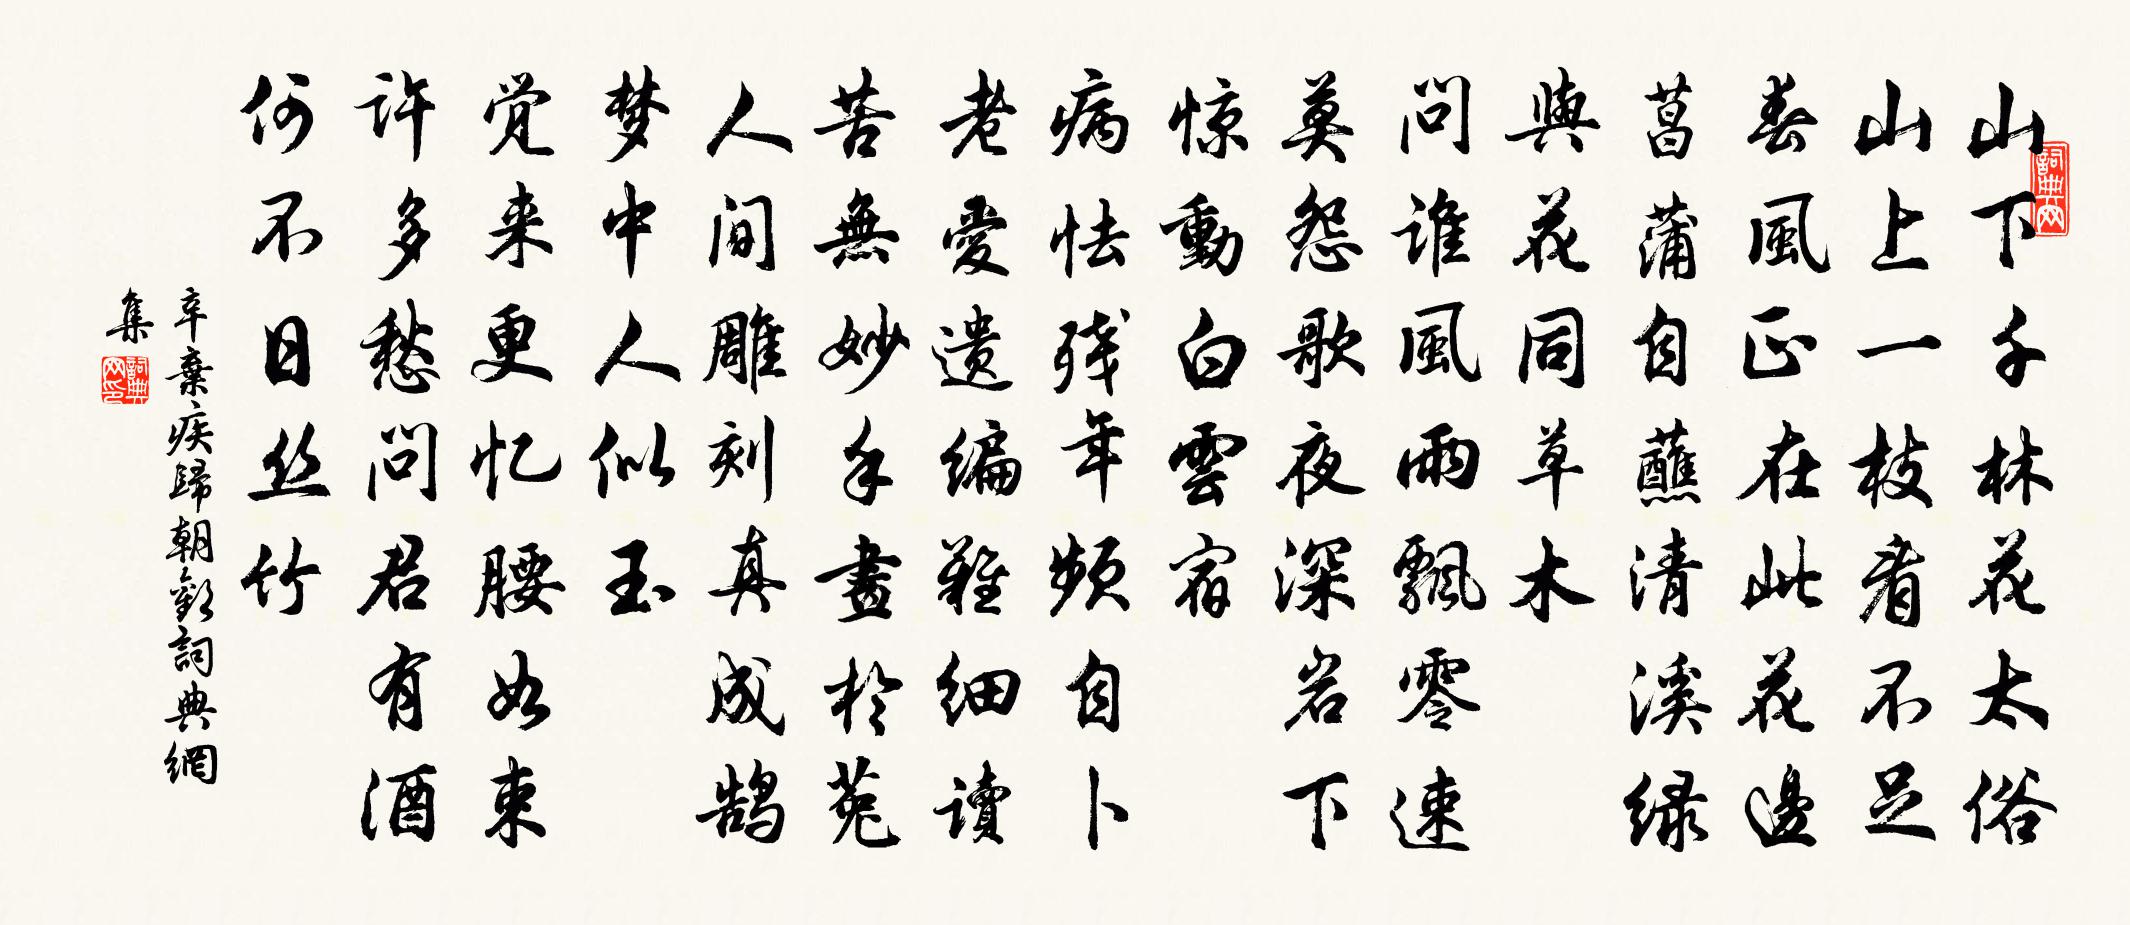 山下千林花太俗
山上一枝看不足
春風正在此花邊
菖蒲自蘸清溪緑
與花同草木
問誰風雨飄零速
莫怨歌夜深岩下
惊動白雲宿
病怯残年頻自卜
老愛遗编難細讀
苦無妙手畫於菟
人间雕刻真成鹄
梦中人似玉
觉来更忆腰如束
许多愁問君有酒
何不日丝竹
辛棄疾歸朝歡詞典網
集
詞典网
詞典网印